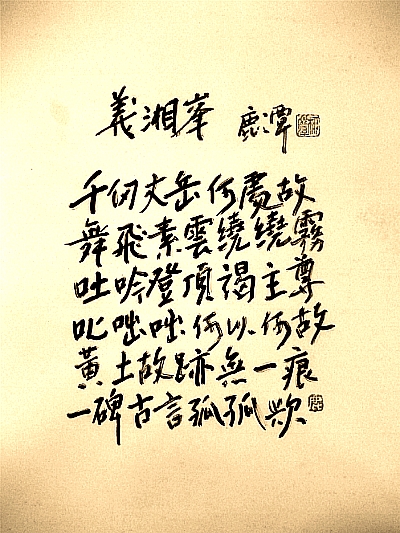 義湘峯 鹿潭
千仞丈岳何處故
舞飛素雲繞繞霧
吐吟登頂謁主尊
叱咄咄何以何故
黃土故跡無一痕
一碑古言孤孤歎